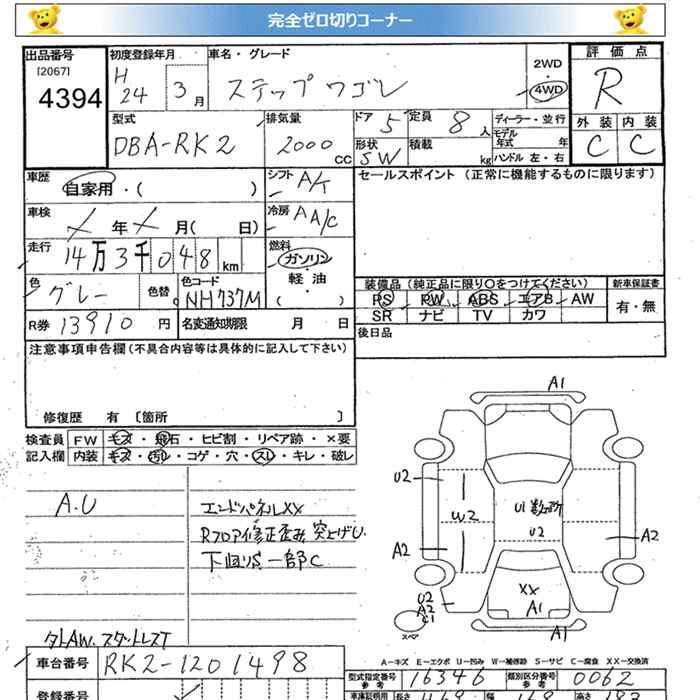 完全ゼロ切りコーナー
出品番号
[2067]
4394
初度登録年月
H
24 3月
車名・グレード
ステップワゴン
2WD
4WD
評価点
R
外装 内装
C C
型式
DBA-RK2
排気量
2000
CC
ドア 5
形状 SW
定員 8人
積載
kg
ディーラー・並行
モデル年式 年
ハンドル 左・右
車歴
自家用・( )
シフト A/T
セールスポイント (正常に機能するものに限ります)
車検
年 月( 日)
冷房 AA/C
走行
14万3千048km
燃料
ガソリン
軽・油
( )
色
グレー
色替
色コード
NH737M
R券 13910円
名変通知期限 月 日
装備品 (純正品に限り○をつけてください)
PS PW ABS エアB AW
SR ナビ TV カワ
新車保証書
有・無
後日品
注意事項申告欄 (不具合内容等は具体的に記入して下さい)
修復歴 有 [箇所 ]
検査員
記入欄
FW キズ・飛石・ヒビ割・リペア跡・×要
内装 キズ・汚レ・コゲ・穴・スレ・キレ・破レ
A.U
エンドパネルXX
Rフロア修正歪み 突上げU.
下回り 一部C
外AW.スタットレスT
A1
U2
W2
A2
U1
U2
A2
XX
A1
U2
A2
C1
スペア
A1
A-キズ E-エクボ U-凹み W-補修跡 S-サビ C-腐食 XX-交換済
車台番号
RK2-1201498
型式指定番号
参考
16346
類別区分番号
参考
0062
登録番号
車庫証明用
長さ
幅
高さ